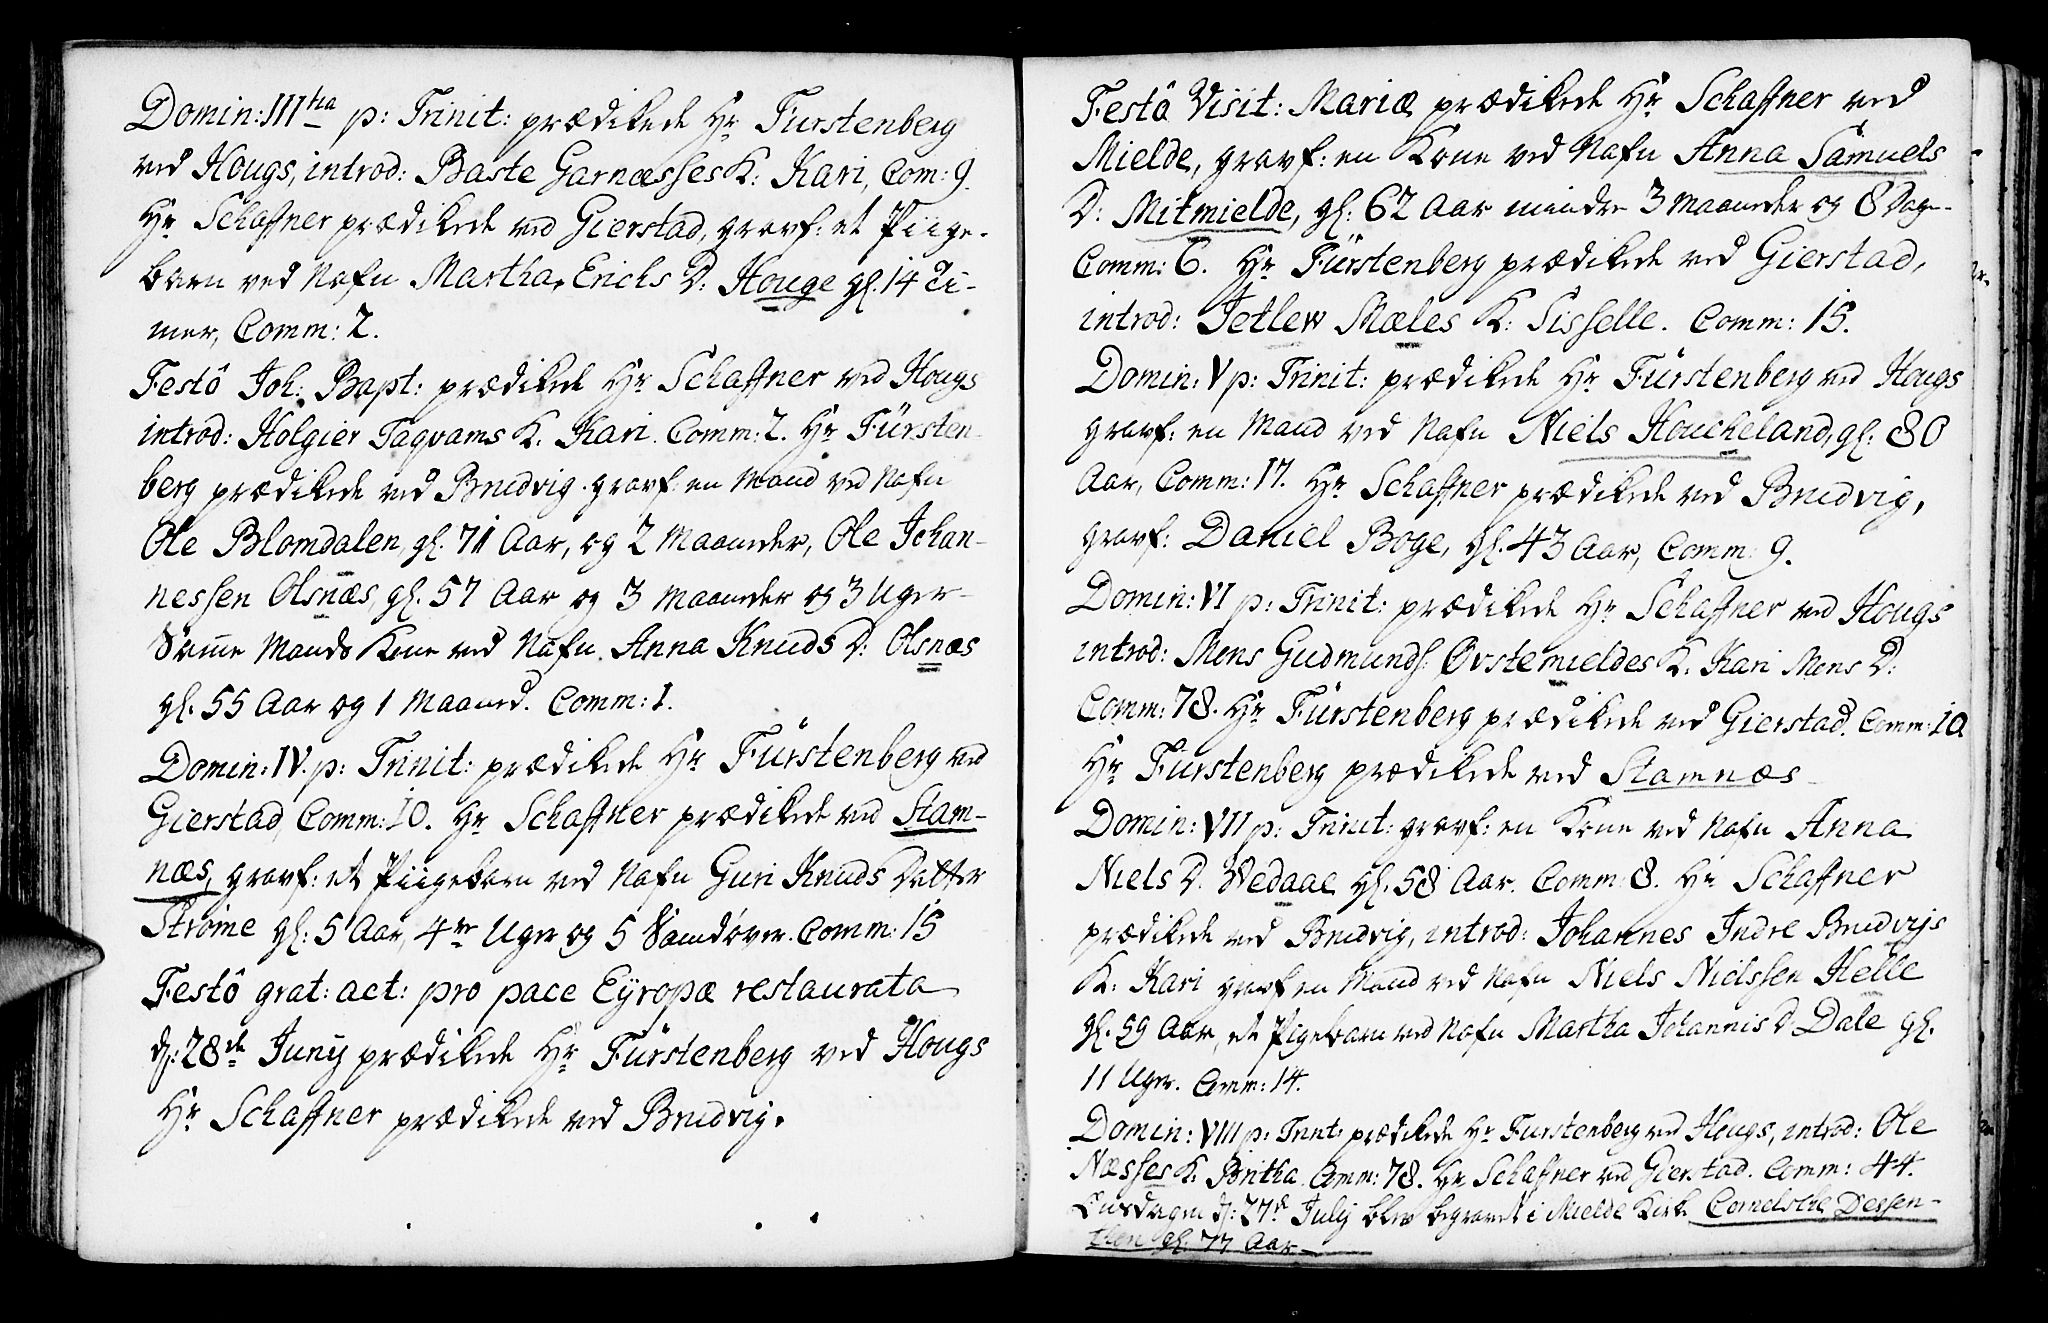 Domin: III tia p: Trinit: prædikede Hr Furstenberg
ved Hougs, introd: Baste Garnæsses K: Kari, Com: 9.
Hr Schaffner prædikede ved Gierstad, gravf: et Piige-
barn ved Nafn Martha Erichs D: Houge gl. 14 Ti-
mer, Comm: 2.
Festô Joh: Bapt: prædikede Hr Schaffner ved Hougs
introd: Holgier Taqvams K. Kari. Comm: 2. Hr Fürsten-
berg prædikede ved Brudvig. gravf: en Mand ved Nafn
Ole Blomdalen, gl. 71 Aar, og 2 Maaneder, Ole Johan-
nessen Olsnæs, gl. 57 Aar og 3 Maaneder og 3 Uger
Samme Mands Kone ved Nafn Anna Knuds D: Olsnæs
gl. 55 Aar og 1 Maaned. Comm: 1.
Domin: IV. p: Trinit: prædikede Hr Fürstenberg ved
Gierstad, Comm: 10. Hr Schaffner prædikede ved Stam-
næs, gravf: et Piigebarn ved Nafn Guri Knuds Datter
Strøme gl: 5 Aar, 4re Uger og 5 Comm: 15
Festô grat: act: pro pace Eÿropæ restaurata
d: 28de Junÿ prædikede Hr Fürstenberg ved Hougs
Hr Schaffner prædikede ved Brudvig.
Festô Visit: Mariæ prædikede Hr Schaffner ved
Mielde, gravf: en Kone ved Nafn Anna Samuels
D: Mitmielde, gl: 62 Aar mindre 3 Maaneder og 8 Dage
Comm: 6. Hr Fürstenberg prædikede ved Gierstad,
introd: Jetlew Mæles K: Sisselle. Comm: 15.
Domin: V p: Trinit: prædikede Hr Fürstenberg ved Hougs
gravf: en Mand ved Nafn Niels Houcheland, gl: 80
Aar, Comm: 17. Hr Schaffner prædikede ved Brudvig,
gravf: Daniel Boge, gl. 43 Aar, Comm: 9.
Domin: VI p: Trinit: prædikede Hr Schaffner ved Hougs
introd: Mons Gudmunds: Øvstemieldes K. Kari Mons D:
Comm: 78. Hr Fürstenberg prædikede ved Gierstad. Comm: 10
Hr Fürstenberg prædikede ved Stamnæs
Domin: VII p: Trinit: gravf: en Kone ved Nafn Anna
Niels D. Wedaae gl: 58 Aar. Comm: 8. Hr Schaffner
prædikede ved Brudvig, introd: Johannes Indre Brudvigs
K: Kari gravf en Mand ved Nafn Niels Nielssen Helle
gl. 59 Aar, et Pigebarn ved Nafn Martha Johannis D. Dale gl.
11 Uger. Comm: 14.
Domin: VIII p: Trint: prædikede Hr Furstenberg ved Hougs, introd: Ole
Næsses K. Britha. Comm: 78. Hr Schaffner ved Gierstad. Comm: 44.
Onsdagen d: 27de Julÿ blev begravet i Mielde Kirke Cornelsche Dessen-
then gl. 77 Aar